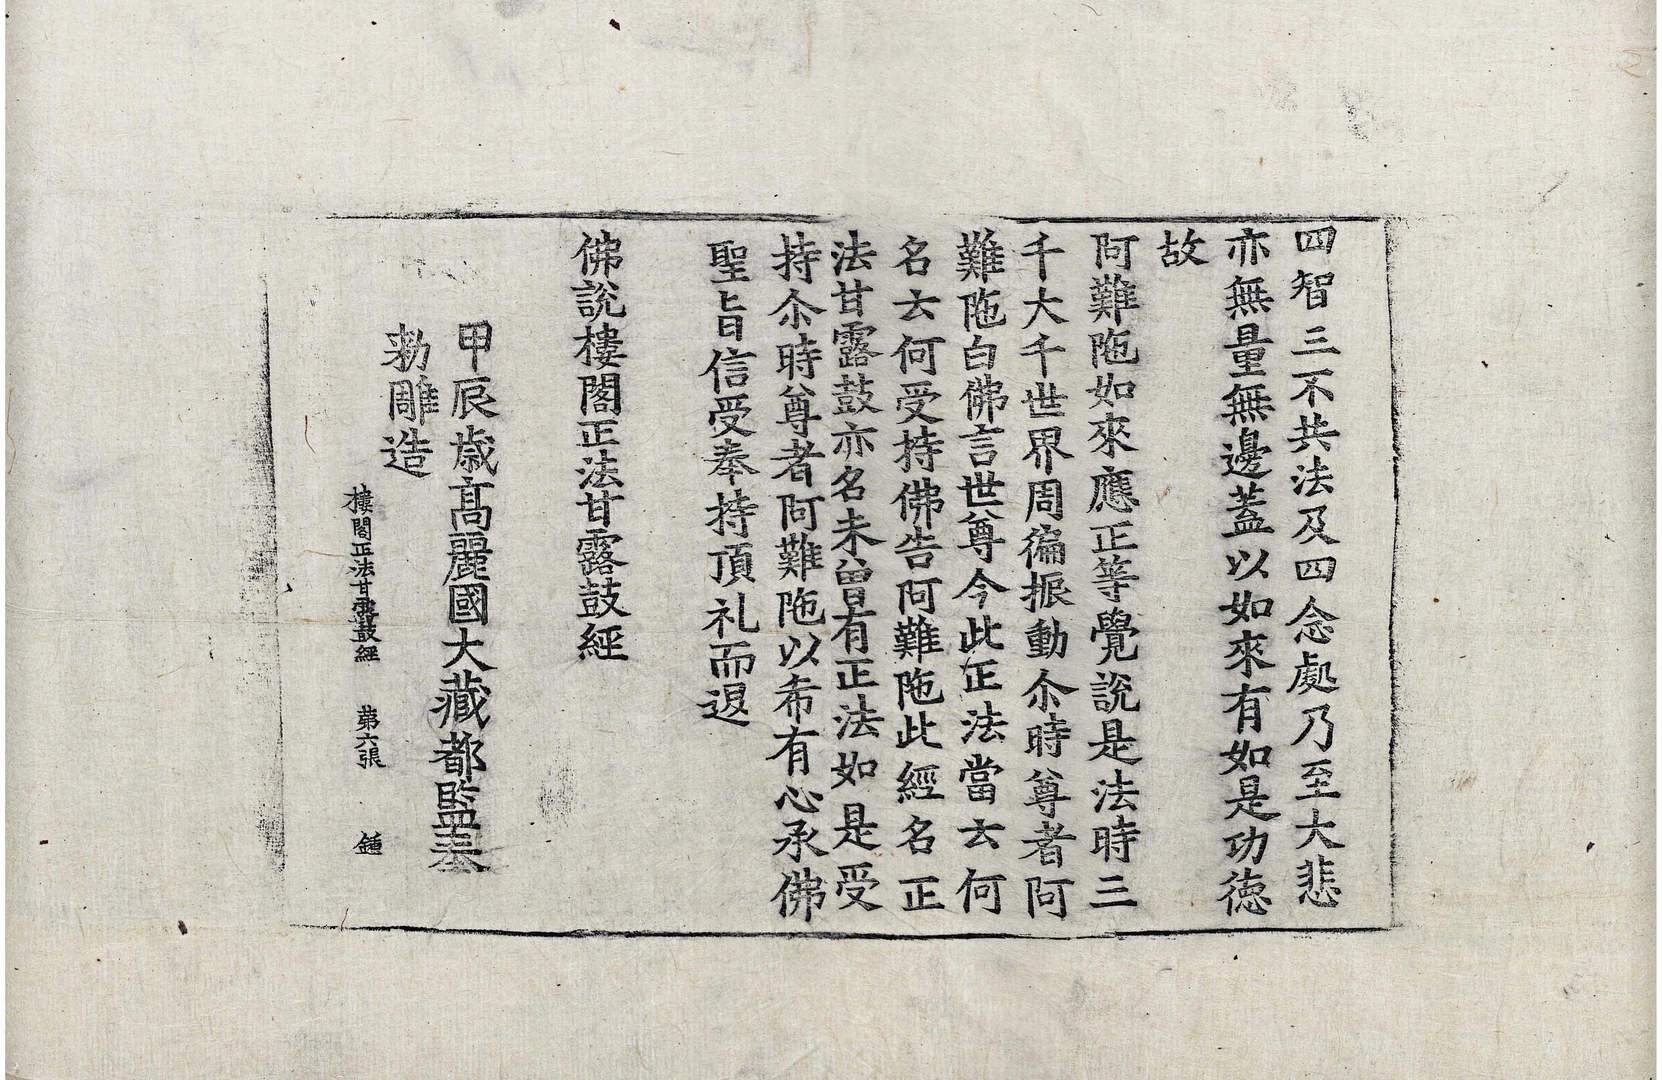 四智三不共法及四念處乃至大悲
亦無量無邊蓋以如來有如是功德
故
阿難陁如來應正等覺說是法時三
千大千世界周徧振動尒時尊者阿
難陁白佛言世尊今此正法當云何
名云何受持佛告阿難陁此經名正
法甘露鼓亦名未曾有正法如是受
持尒時尊者阿難陁以希有心承佛
聖旨信受奉持頂礼而退
佛說樓閣正法甘露鼓經
甲辰歳高麗國大藏都監奉
勑雕造
樓閣正法甘露鼓經 第六張 鍾